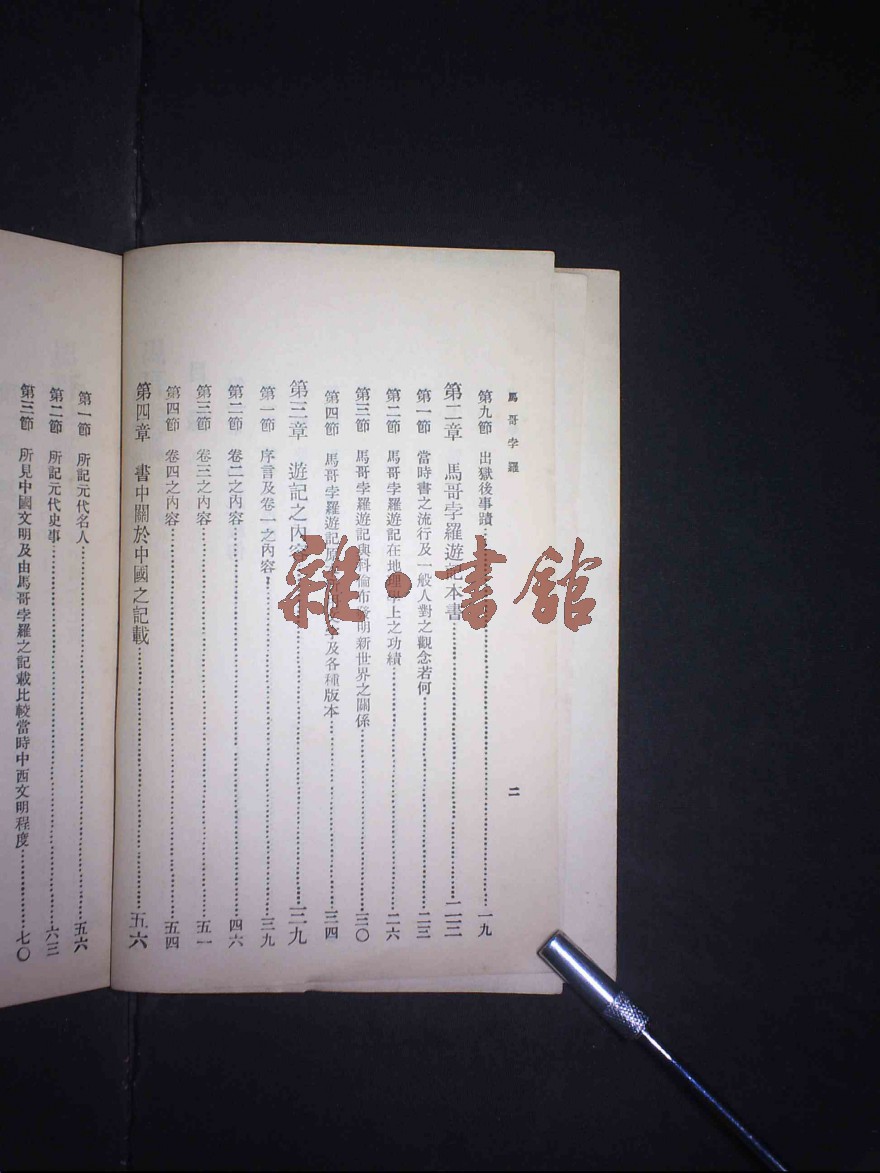 馬哥孛羅
二
第九節 出獄後事蹟 一九
第二章 馬哥孛羅遊記本書 二三
第一節 當時書之流行及一般人對之觀念若何 二三
第二節 馬哥孛羅遊記在地理學上之功績 二六
第三節 馬哥孛羅遊記與科倫布發明新世界之關係 三〇
第四節 馬哥孛羅遊記原 及各種版本 三四
第三章 遊記之內容 三九
第一節 序言及卷一之內容 三九
第二節 卷二之內容 四六
第三節 卷三之內容 五一
第四節 卷四之內容 五四
第四章 書中關於中國之記載 五六
第一節 所記元代名人 五六
第二節 所記元代史事 六三
第三節 所見中國文明及由馬哥孛羅之記載比較當時中西文明程度 七〇
雜·書館